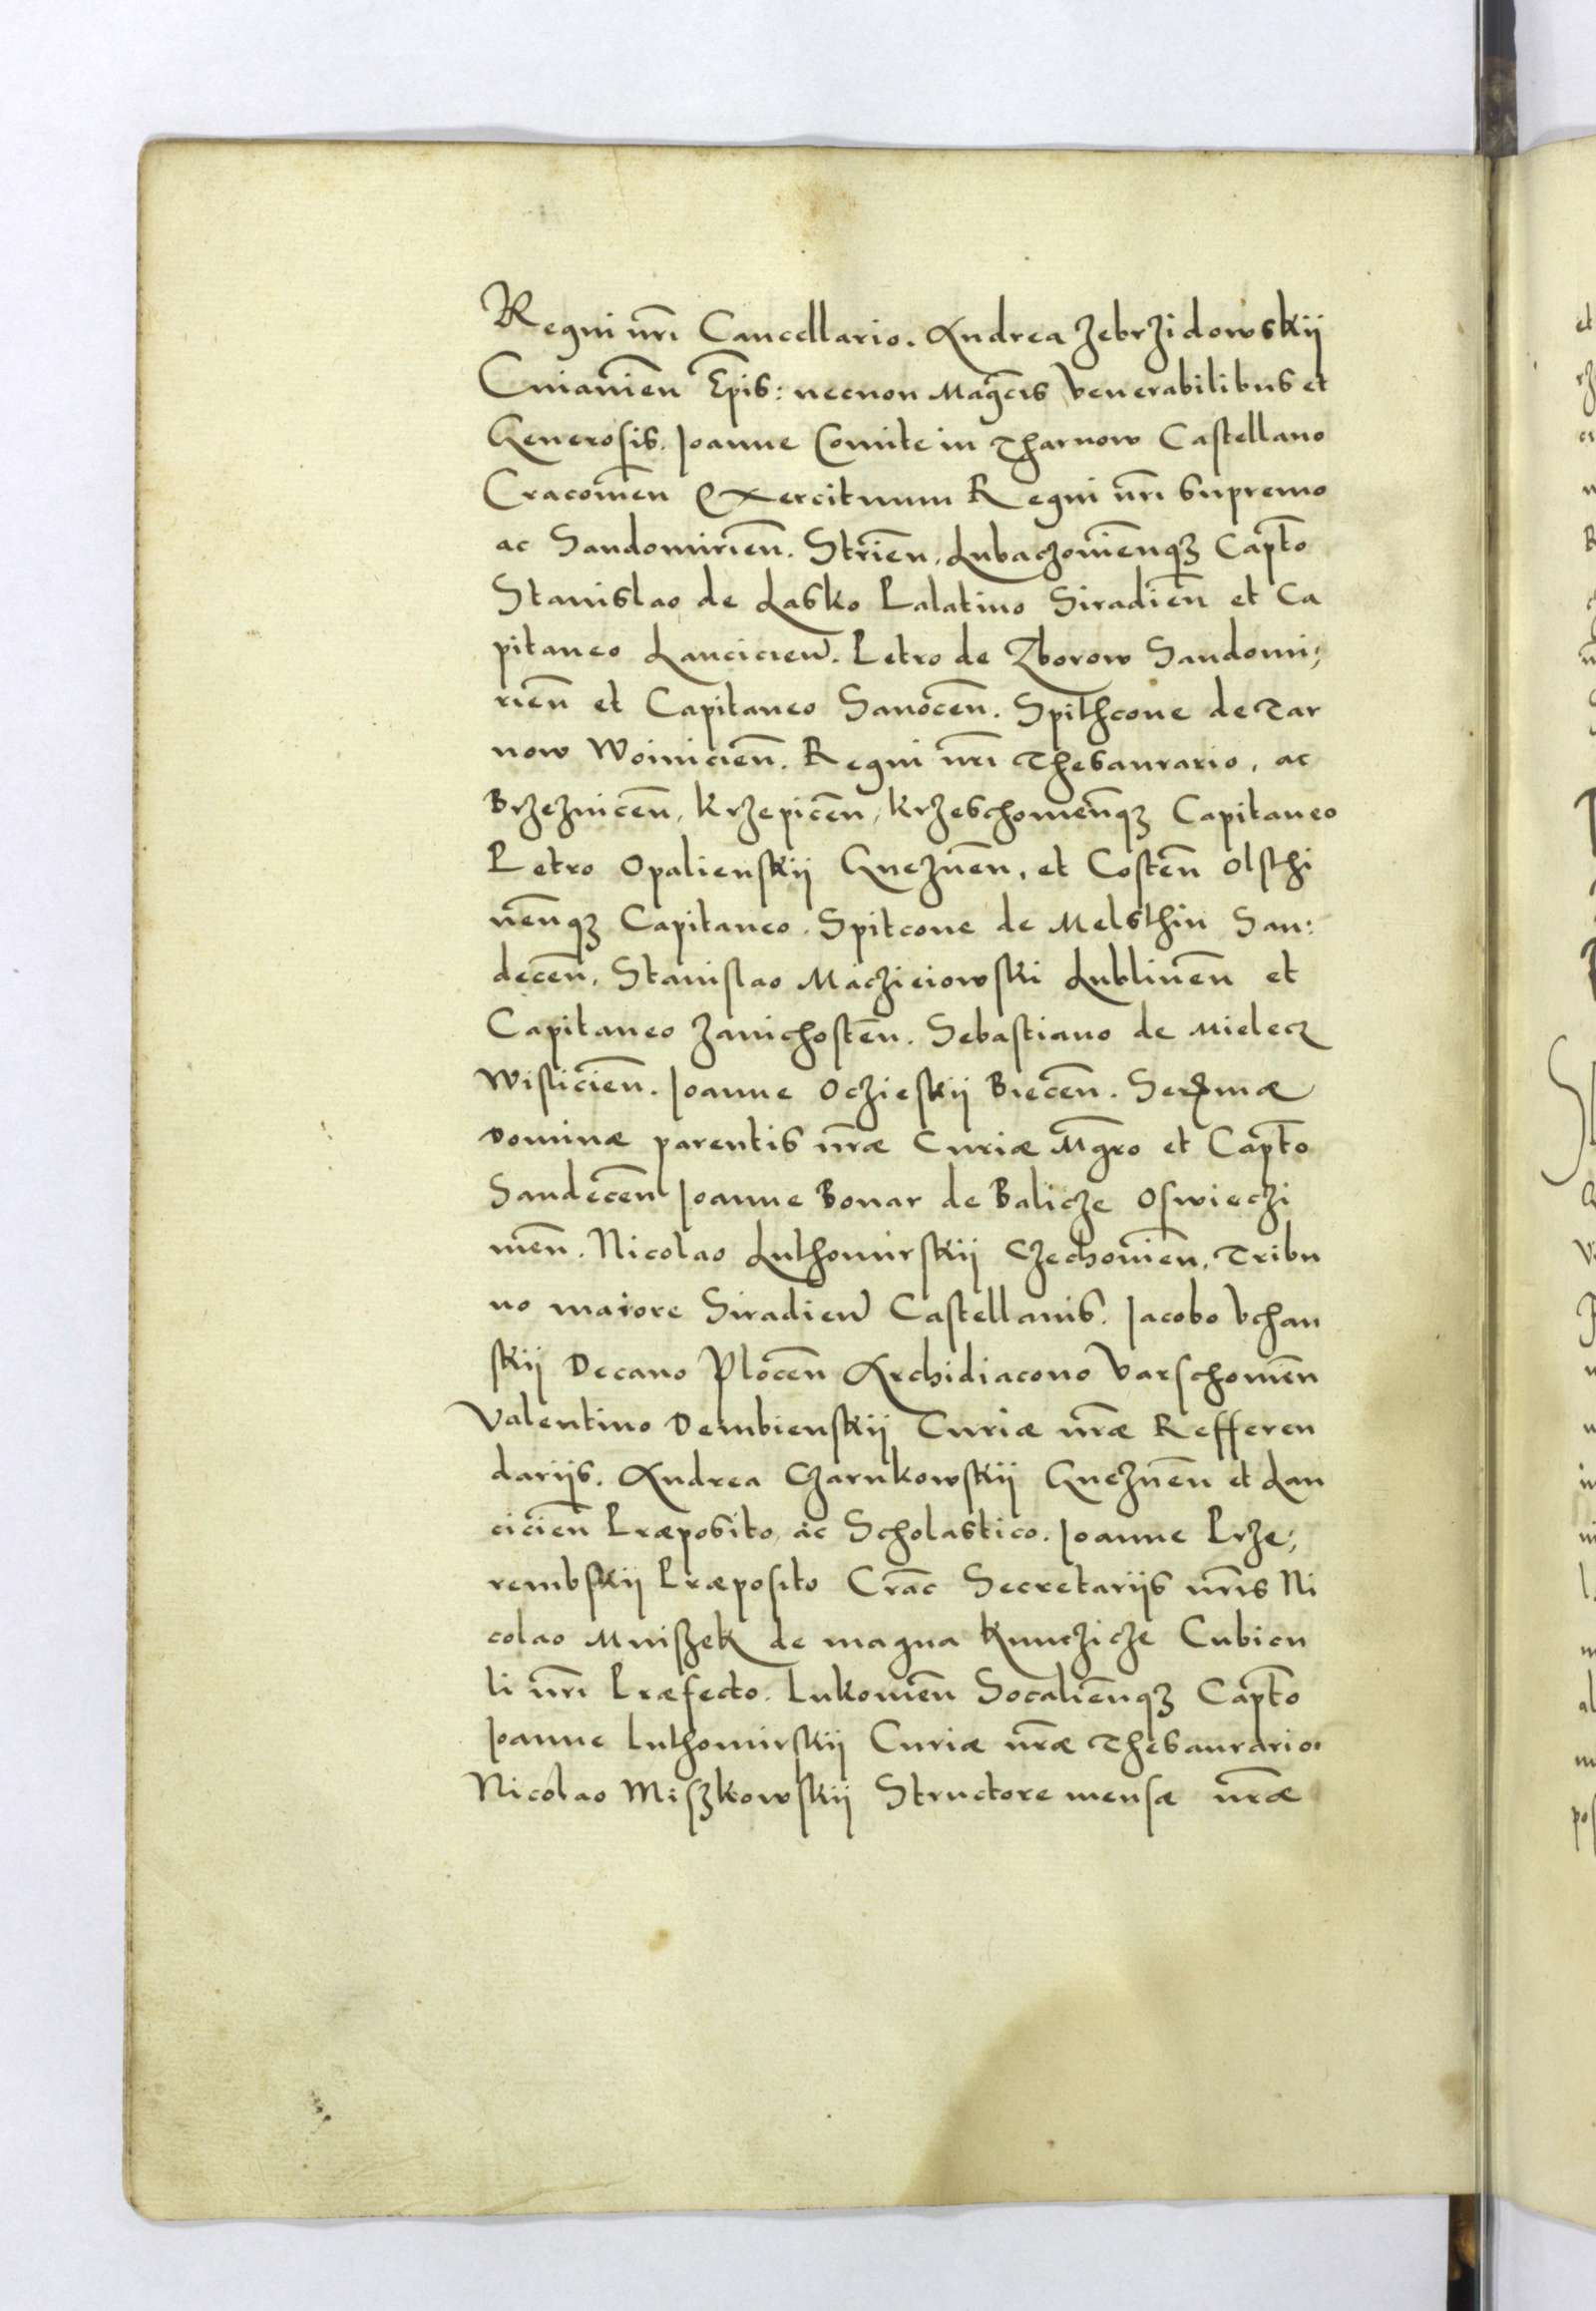 Regni nr̄i Cancellario. Andrea Zebrzidowskij
Cuiavien̄ Ep̄is: necnon Maḡcis Venerabilibus et
Generosis. Joanne Comite in Tharnow Castellano
Cracovien̄ Exercituum Regni nr̄i Supremo
ac Sandomirien̄. Strien̄. Lubaczovien̄qꝫ Capt̄o
Stanislao de Lasko Palatino Siradien̄ et Ca
pitaneo Lancicien̄. Petro de Zborow Sandomi;
rien̄ et Capitaneo Sanocen̄. Spithcone de Tar
now Woinicien̄. Regni nr̄i Thesaurario, ac
Brzeznicen̄, Krzepicen̄, Krzeschovien̄qꝫ Capitaneo
Petro Opalienskij Gneznen̄, et Costen̄ Olschi
nen̄qꝫ Capitaneo. Spitcone de Melsthin San:
decen̄, Stanislao Macziciowski Lublinen̄ et
Capitaneo Zavichosten̄. Sebastiano de Mielecz
Wislicien̄. Joanne Oczieskij Biecen̄. Serꝫmæ
Dominæ parentis nr̄æ Curiæ Mḡro et Capt̄o
Sandecen̄ Joanne Bonar de Balicze Oswieczi
men̄. Nicolao Luthomirskij Czechovien̄, Tribu
no maiore Siradien̄ Castellanis. Jacobo Vchan
skij Decano Plocen̄ Archidiacono Varschovien̄
Valentino Dembienskij Curiæ nr̄æ Refferen
darijs. Andrea Czarnkowskij Gneznen̄ et Lan
cicien̄ Præposito, ac Scholastico. Joanne Prze;
rembskij Præposito Crac̄ Secretarijs nr̄is Ni
colao Mniszek de magna Kunczicze Cubicu
li nr̄i Præfecto. Lukovien̄ Socalien̄qꝫ Capt̄o
Joanne Luthomirskij Curiæ nr̄æ Thesaurario.
Nicolao Miszkowskij Structore mensæ nr̄æ